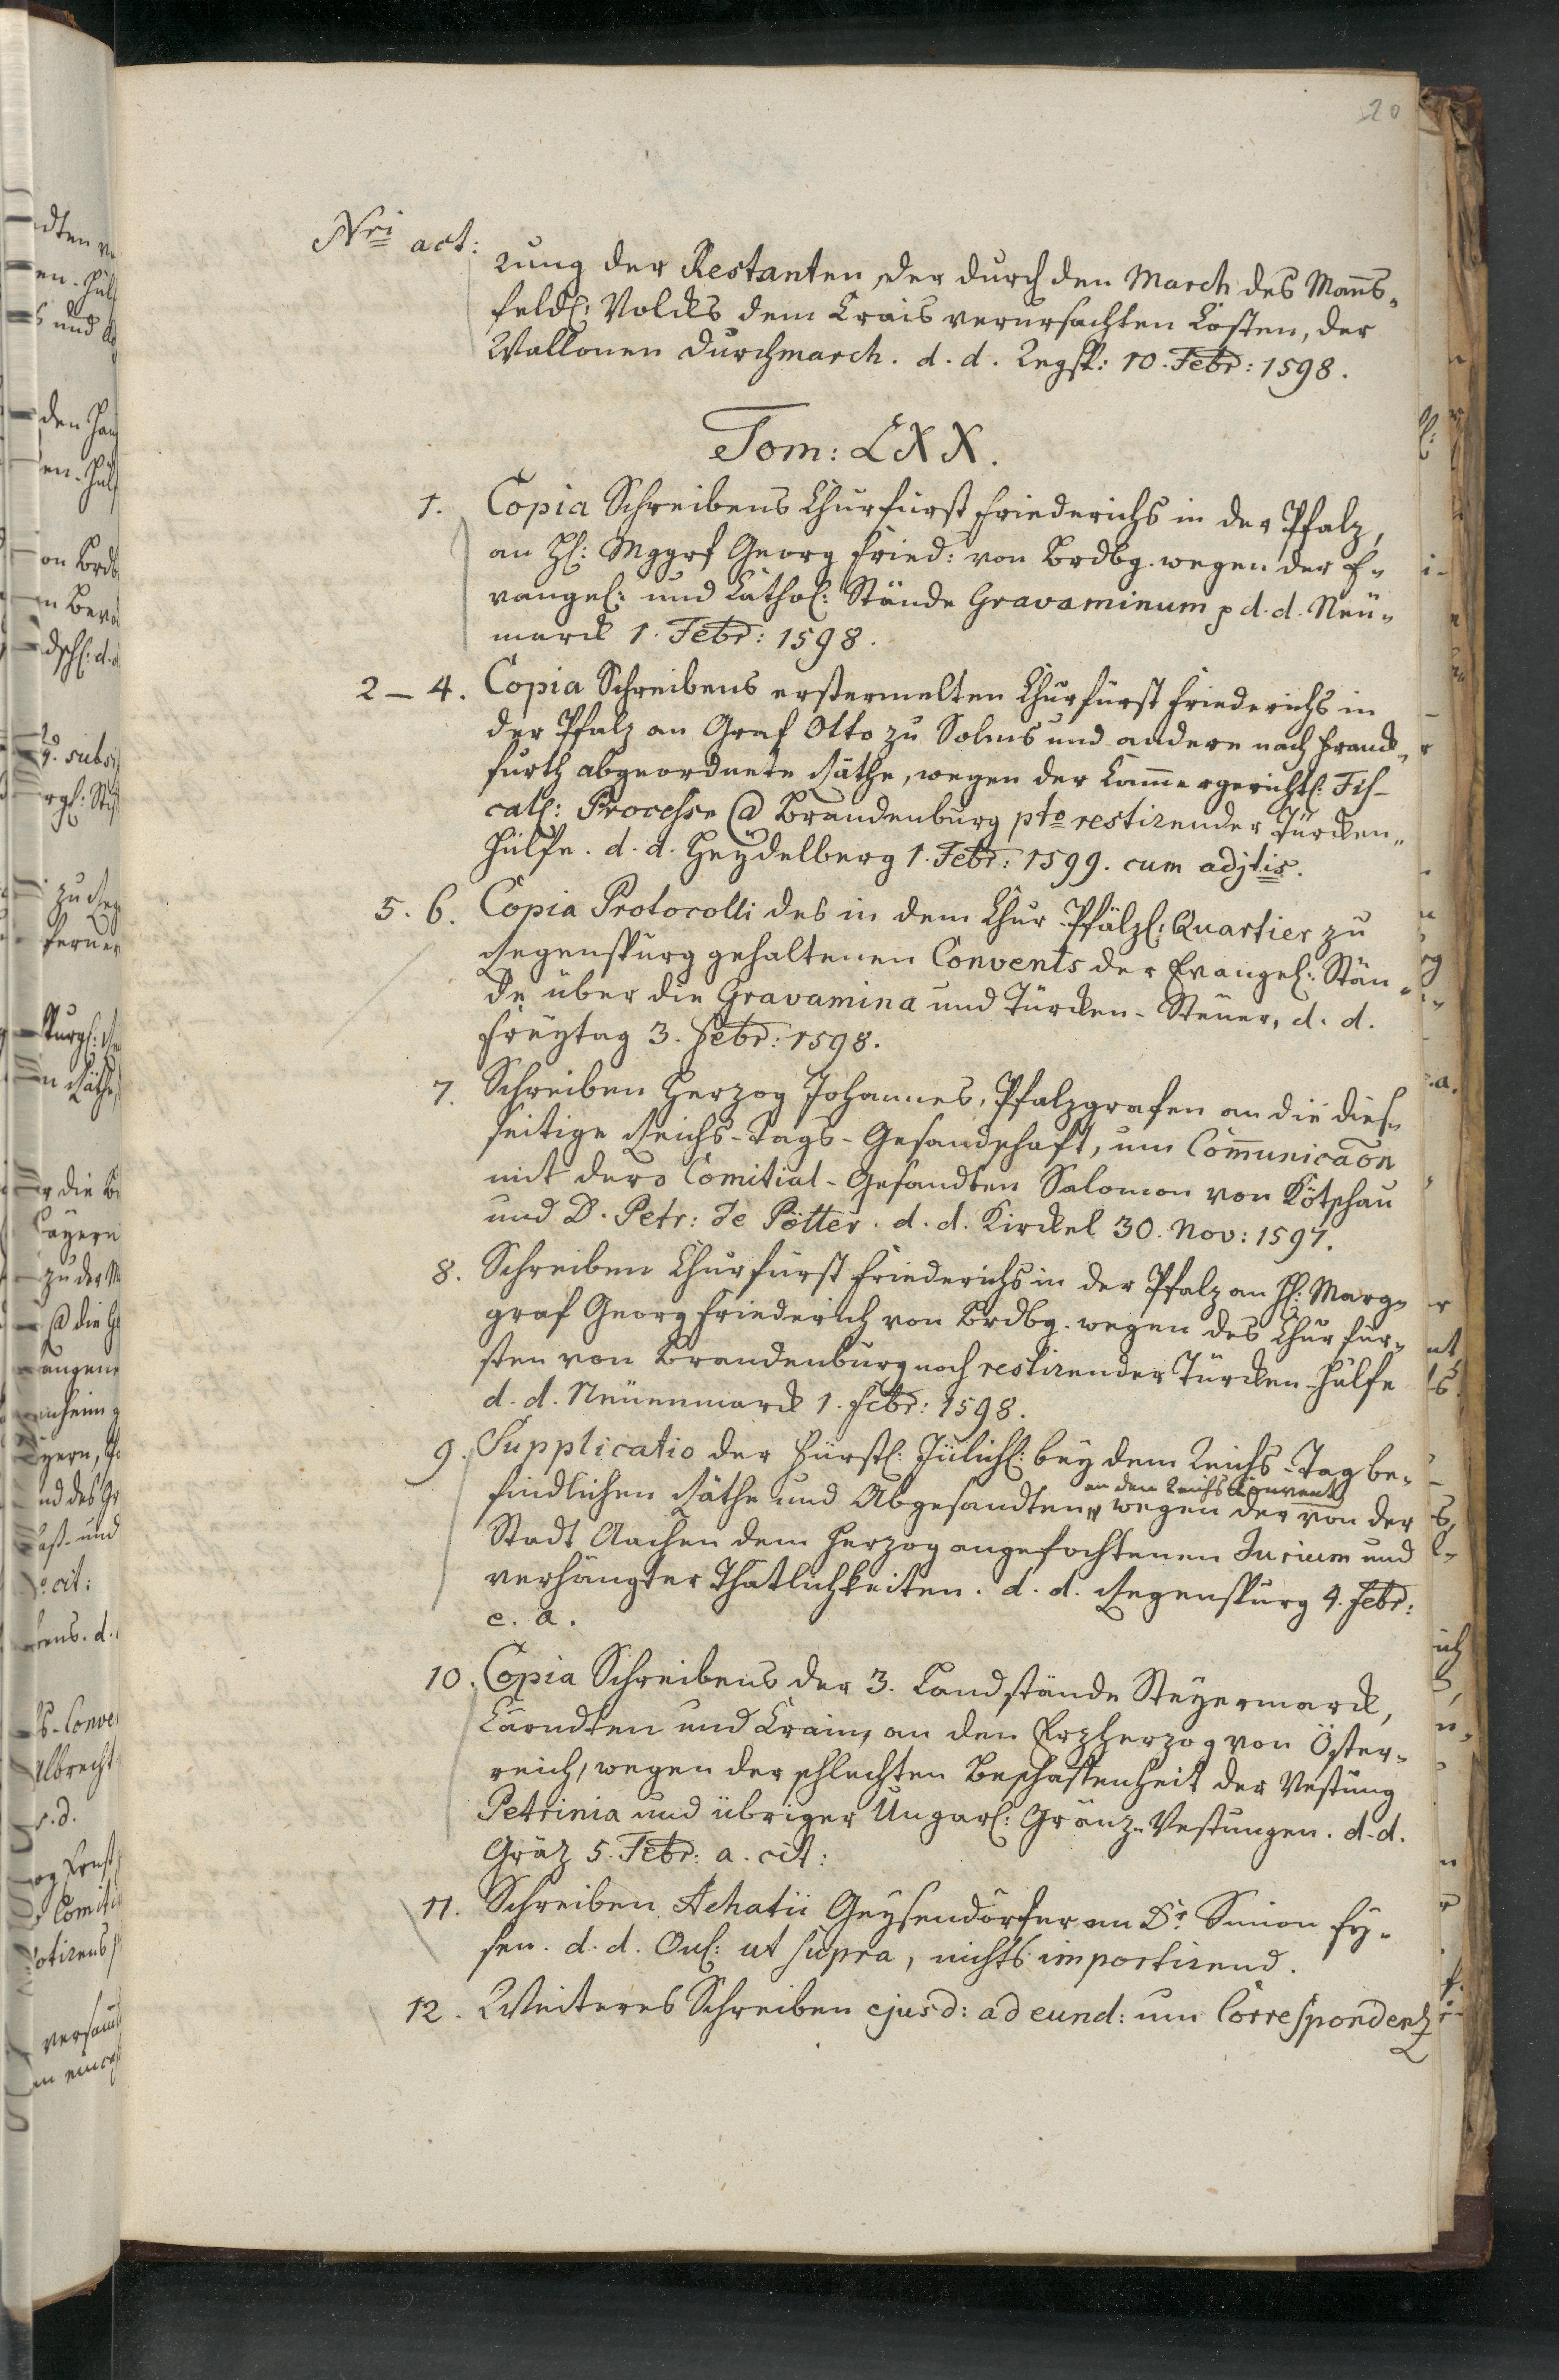 20
Nri act:
rung der Restanten, der durch den March des Mans„
feldl: Volcks dem Crais verursachten Costen, der
Wallonen durchmarch. d. d. Regsp: 10. Febr: 1598.
Tom: LXX.
1. Copia Schreibens Churfürst Friederichs in der Pfalz,
an H: Mggrf Georg Fried: von Brdbg. wegen der E„
vangel: und Cathol: Stände Gravaminum p d. d. Neü„
marck 1. Febr: 1598.
2 – 4. Copia Schreibens erstermelten Churfürst Friederichs in
der Pfalz an Graf Otto zu Solms und andere nach Franck„
furth abgeordnete Räthe, wegen der Cammergerichtl: Fis-
cal: Processe @ Brandenburg pto restirender Türcken„
Hülfe. d. d. Heydelberg 1. Febr: 1599. cum adjtis.
5. 6. Copia Protocolli des in dem Chur-Pfälzl: Quartier zu
Regenspurg gehaltenen Convents der Evangel: Stän„
de über die Gravamina und Türcken-Steüer, d. d.
Freytag 3. Febr: 1598.
7. Schreiben Herzog Johannes, Pfalzgrafen an die dies„
seitige Reichs-Tags-Gesandschaft, um Com̄unicaōn
mit dero Comitial-Gesandten Salomon von Kötschau
und D. Petr: de Pötter. d. d. Kirckel 30. Nov: 1597.
8. Schreiben Churfürst Friederichs in der Pfalz an H: Marg„
graf Georg Friederich von Brdbg. wegen des Churfür„
sten von Brandenburg noch restirender Türcken-Hülfe
d. d. Neüenmarck 1. Febr: 1598.
9. Supplicatio der Fürstl: Jülichl: bey dem Reichs-Tag be„
findlichen Räthe und Abgesandten, an den Reichs Convent wegen der von der
Stadt Aachen dem Herzog angefochtenen Jurium und
verhängter Thatlichkeiten. d. d. Regenspurg 4. Febr:
e. a.
10. Copia Schreibens der 3. Landstände Steyermarck,
Cärndten und Crain, an den Erzherzog von Öster„
reich, wegen der schlechten Beschaffenheit der Vestung
Petrinia und übriger Ungarl: Gränz-Vestungen. d. d.
Gräz 5. Febr: a. cit:
11. Schreiben Achatii Geysendörfer an Dr Simon Ey„
sen. d. d. Onl: ut supra, nichts importirend.
12. Weiteres Schreiben ejusd: ad eund: um Correspondenz